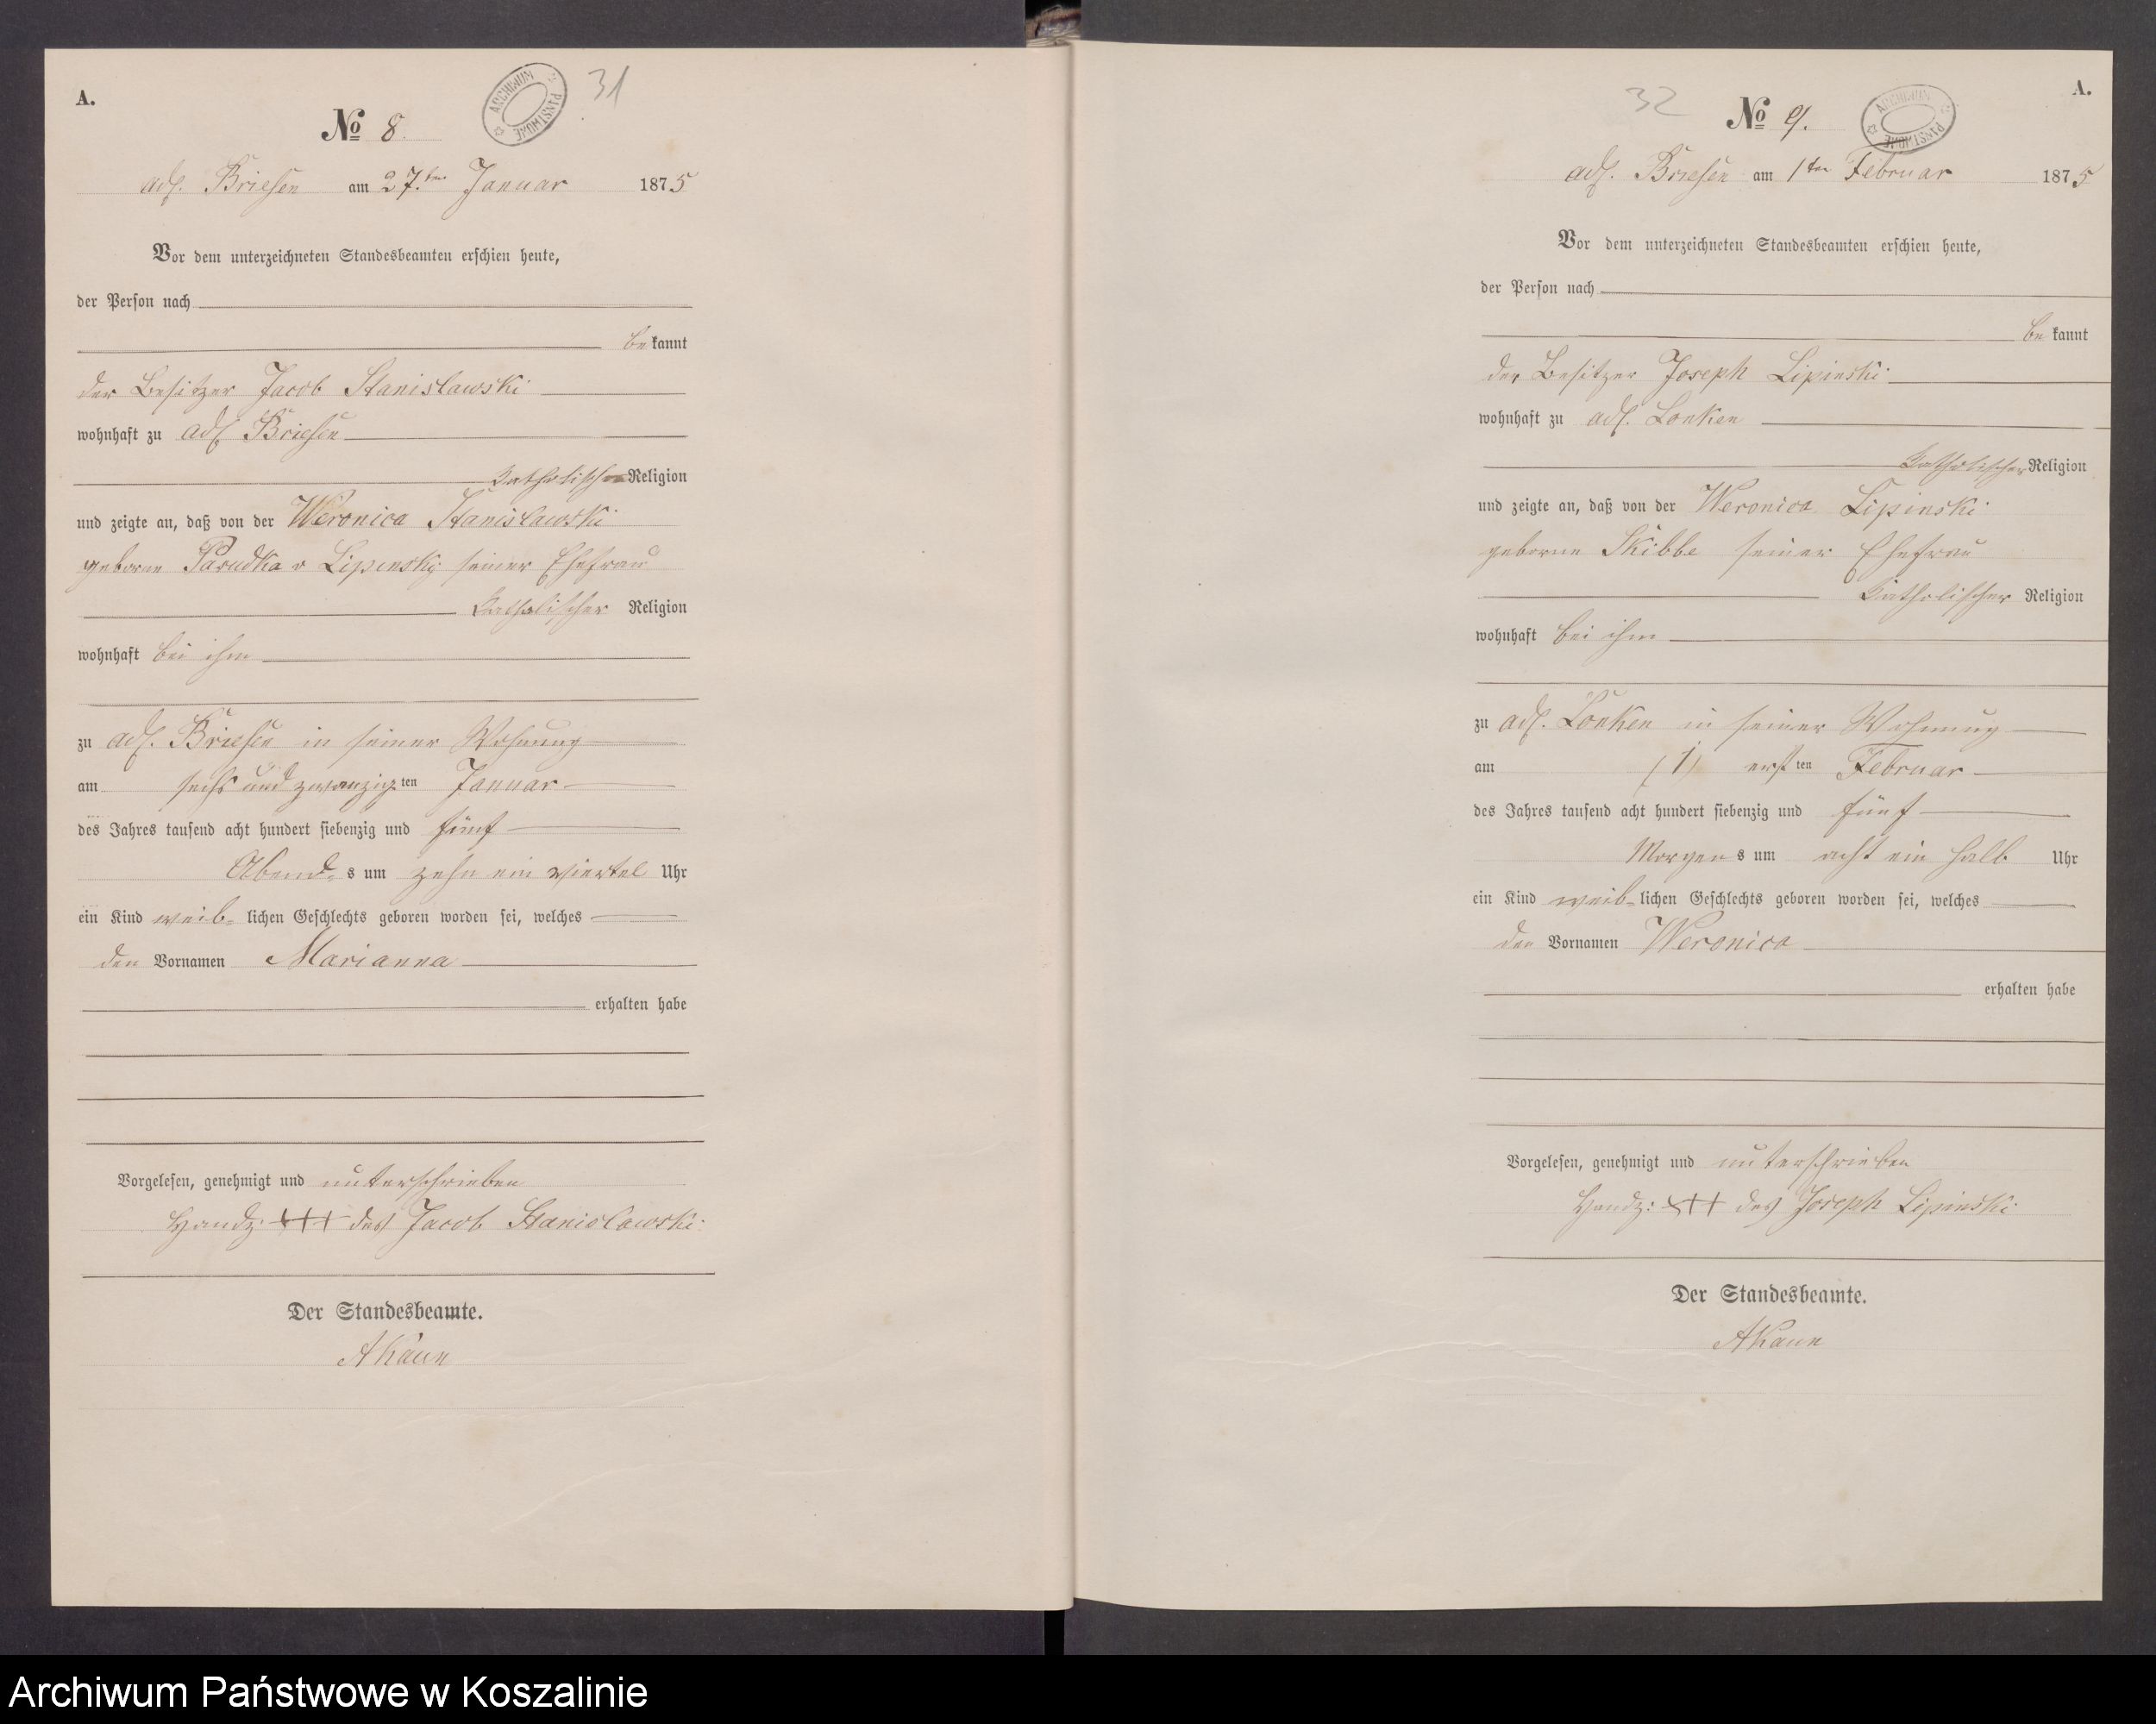 A.
31
ARCHIWUM PAŃSTWOWE
No 8.
adl. Briesen am 27.ten Januar 1875
Vor dem unterzeichneten Standesbeamten erschien heute,
der Person nach
be kannt
der Besitzer Jacob Stanislawski
wohnhaft zu adl Briesen
katholischer Religion
und zeigte an, daß von der Weronica Stanislawski
geborne Parudka v Lipinsky seiner Ehefrau
katholischer Religion
wohnhaft bei ihm
zu adl. Briesen in seiner Wohnung
am sechs und zwanzig ten Januar
des Jahres tausend acht hundert siebenzig und fünf
Abend= s um zehn ein viertel Uhr
ein Kind weib= lichen Geschlechts geboren worden sei, welches
den Vornamen Marianna
erhalten habe
Vorgelesen, genehmigt und unterschrieben
Handz: +++ des Jacob Stanislawski
Der Standesbeamte.
AKaun
A.
32
ARCHIWUM PAŃSTWOWE
No 9.
adl. Briesen am 1ten Februar 1875
Vor dem unterzeichneten Standesbeamten erschien heute,
der Person nach
be kannt
der Besitzer Joseph Lipinski
wohnhaft zu adl. Lonken
katholischer Religion
und zeigte an, daß von der Weronica Lipinski
geborne Skibbe seiner Ehefrau
katholischer Religion
wohnhaft bei ihm
zu adl. Lonken in seiner Wohnung
am (1) erst ten Februar
des Jahres tausend acht hundert siebenzig und fünf
Morgen s um acht ein halb Uhr
ein Kind weib= lichen Geschlechts geboren worden sei, welches
den Vornamen Weronica
erhalten habe
Vorgelesen, genehmigt und unterschrieben
Handz: +++ des Joseph Lipinski
Der Standesbeamte.
AKaun
Archiwum Państwowe w Koszalinie